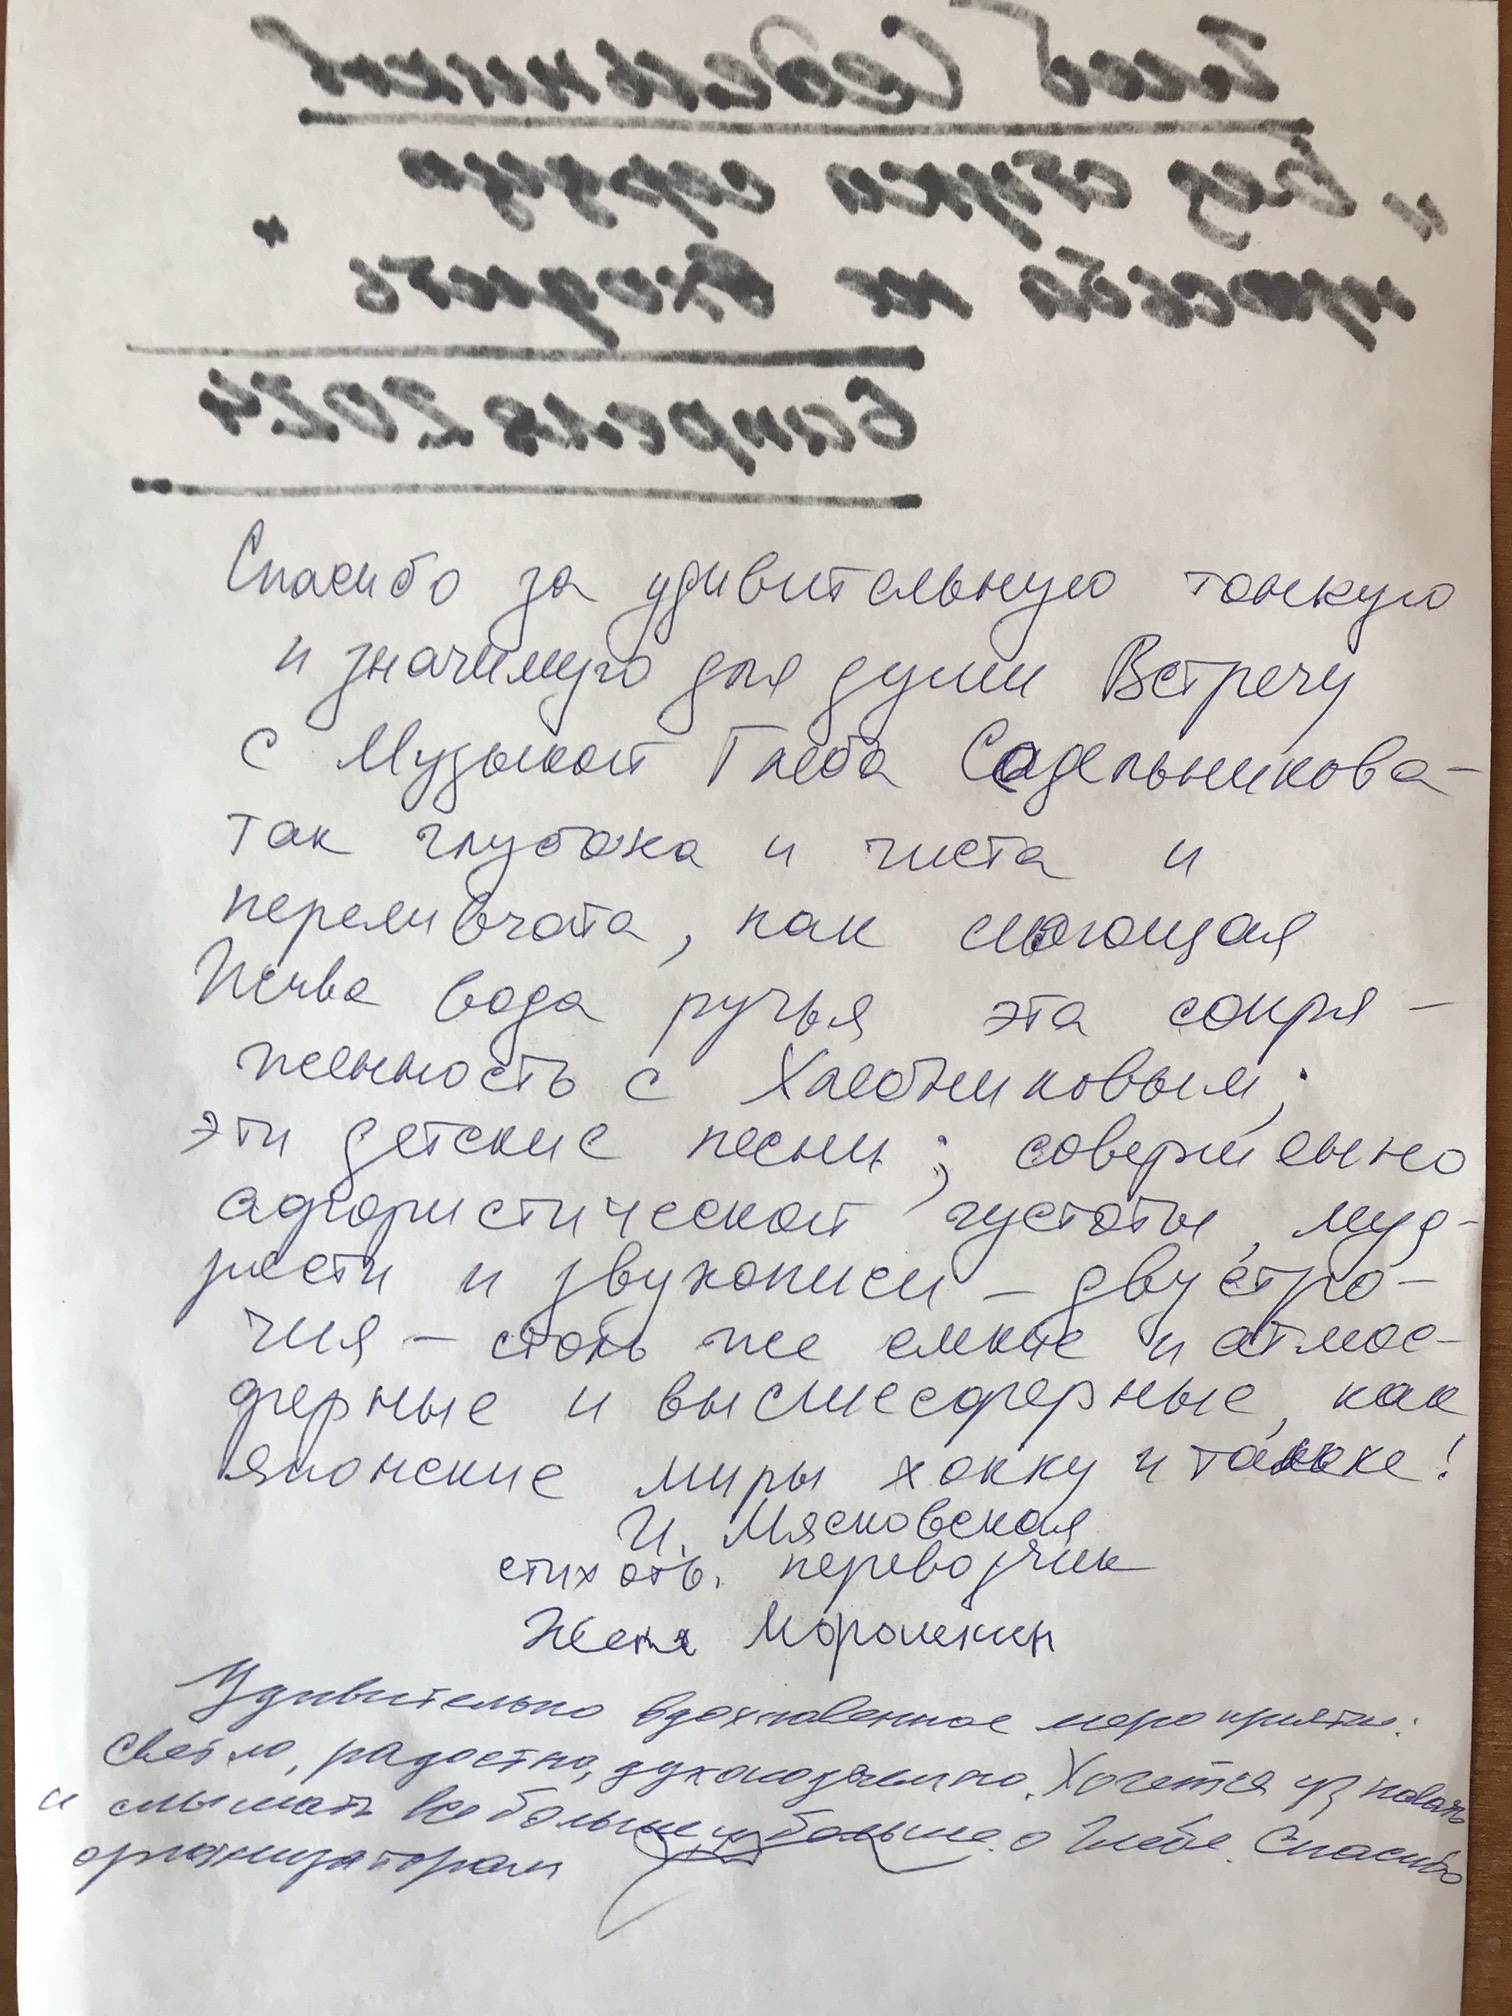 Глеб Седельников
„Без стука сердца
просьба не входить"
6 апреля 2024
Спасибо за удивительную тонкую
и значимую для души Встречу
с Музыкой Глеба Седельникова –
так глубока и чиста и
переливчата, как
вода ручья эта сопря–
женность с Хлебниковым;
эти детские песни; совершенно
афористической густоты, муд–
рости и звукописи – двустро–
чия – столь же емкие и атмос–
ферные и высшесферные, как
японские миры хокку и танка!
И. Мясковская
стихотв. переводчик
Женя Морошкин
Удивительно вдохновенное мероприятие:
светло, радостно, духоподъемно. Хочется узнавать
и слышать все больше и больше о Глебе. Спасибо
организаторам